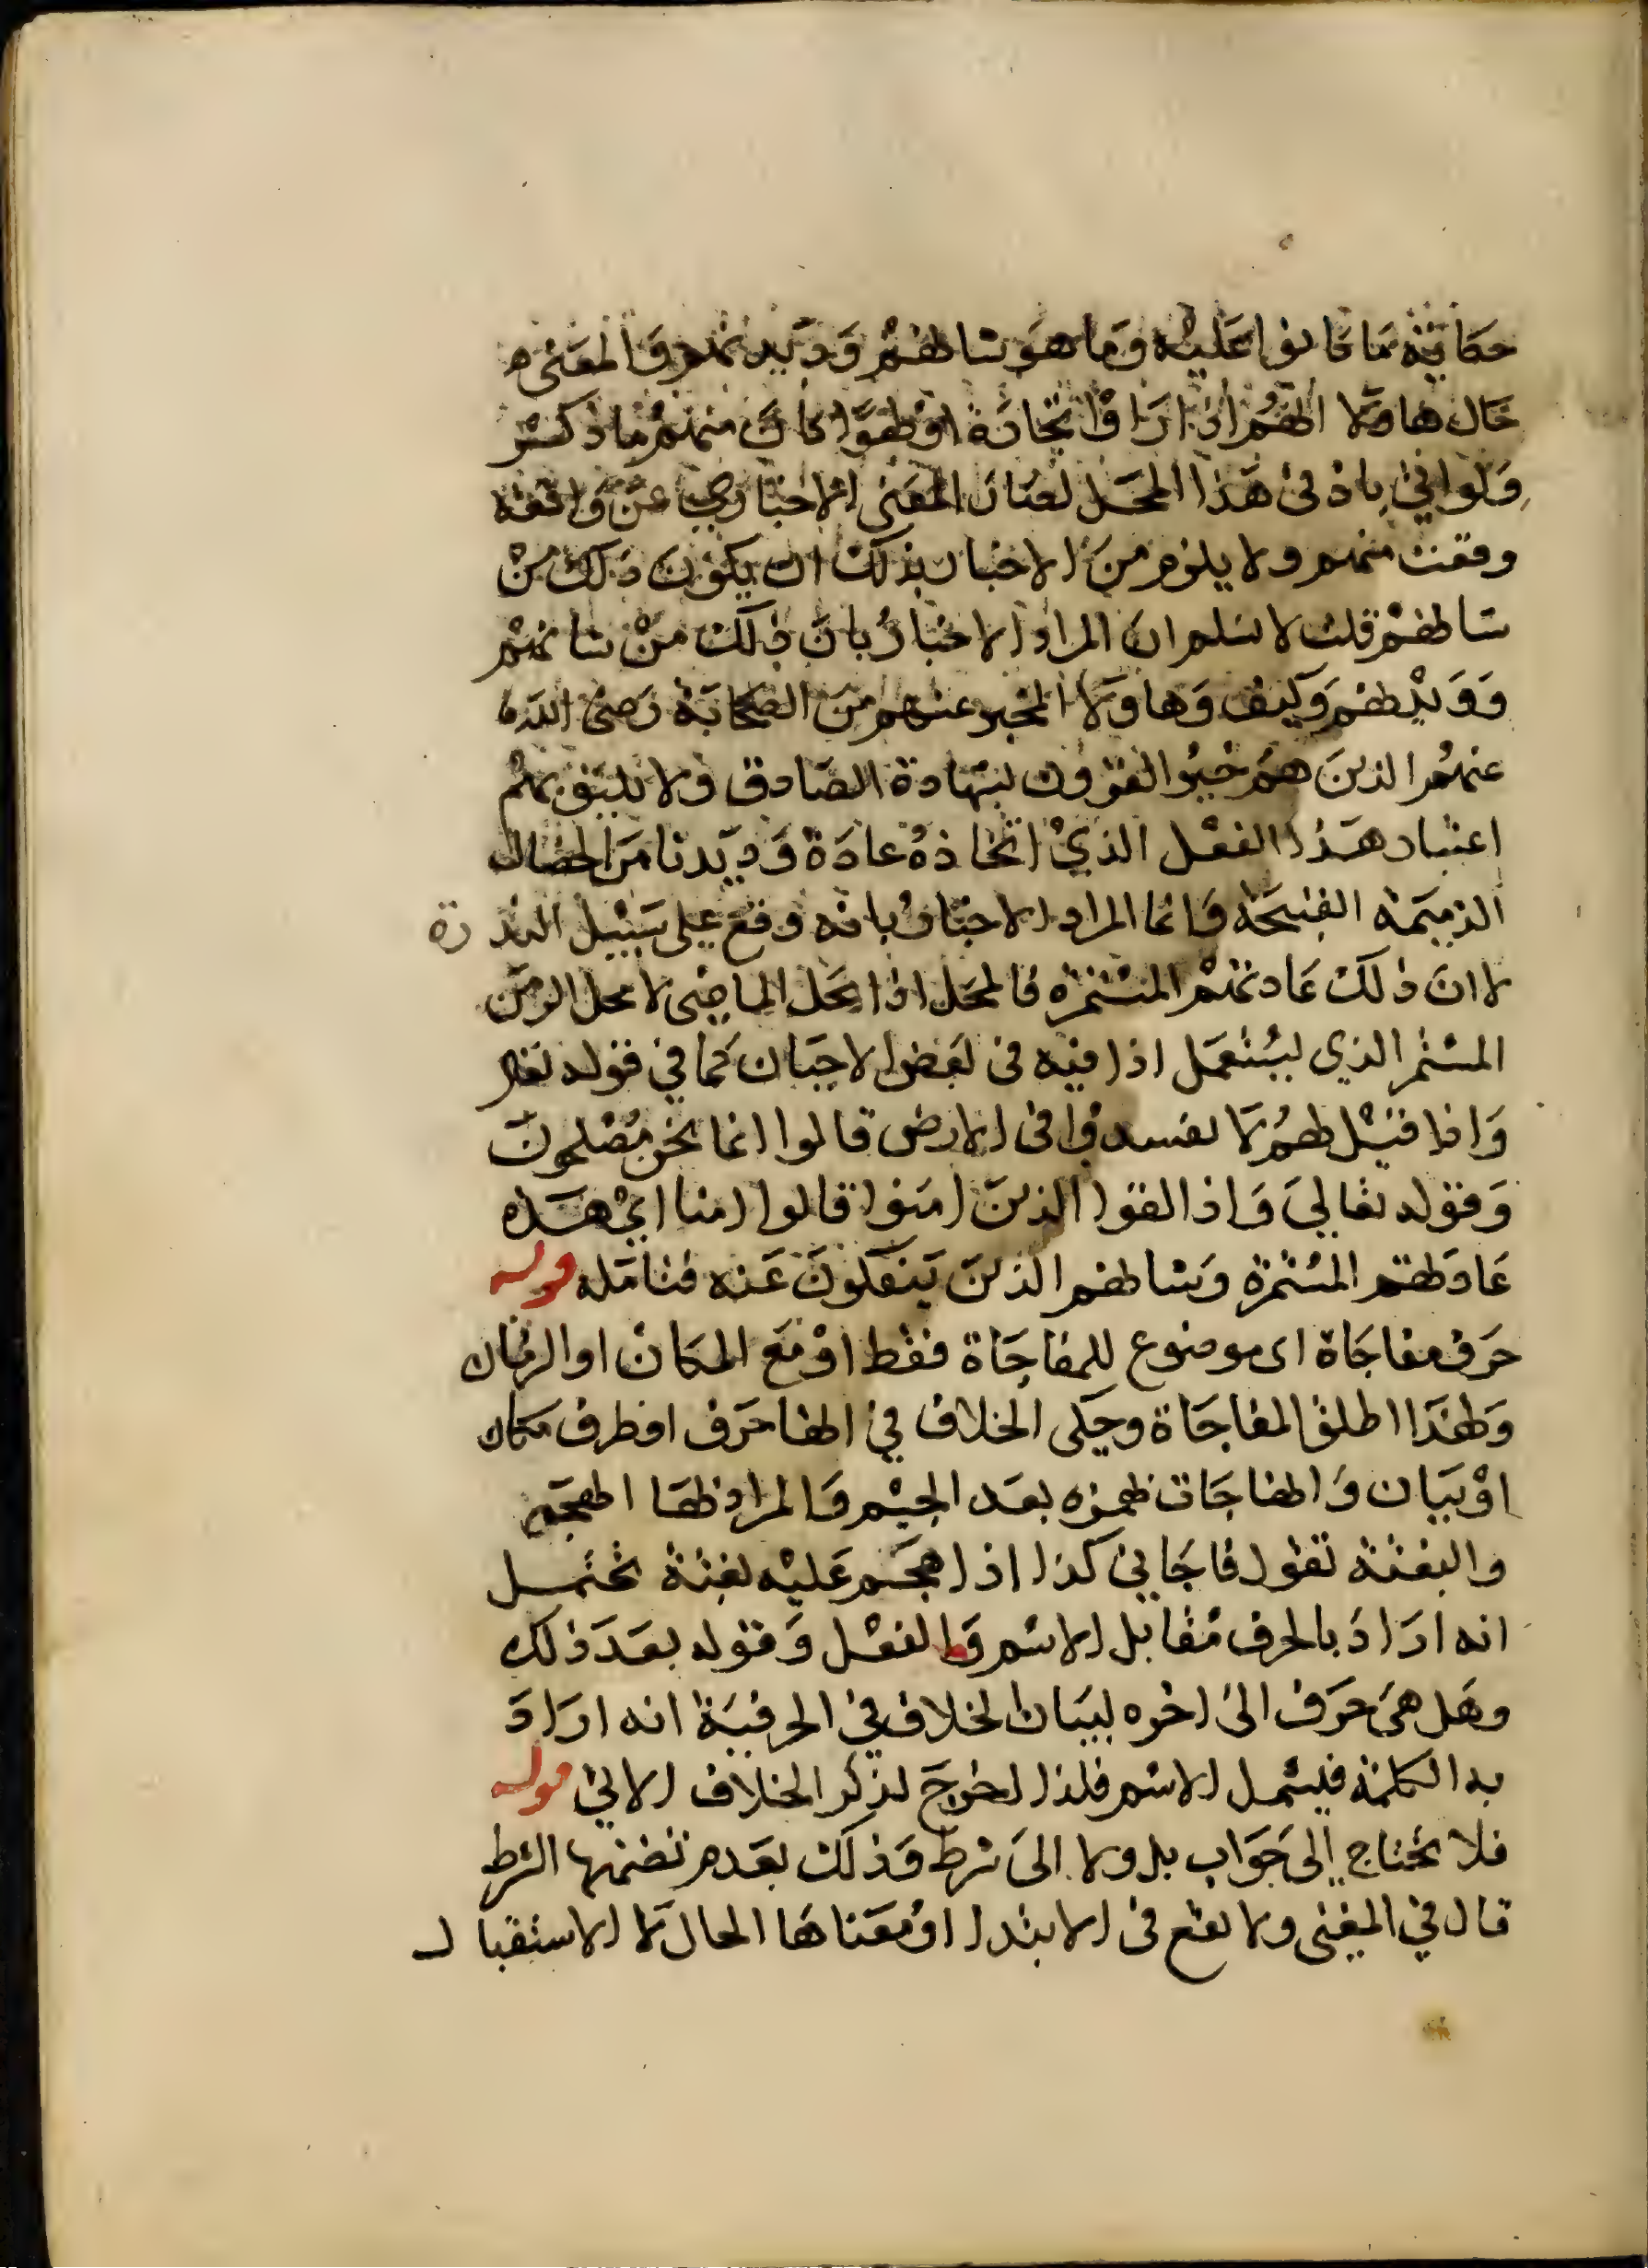 حكاية ما كانوا عليه وما هو شاطهم وديدنهم والمعنى ه
حال هاولا اطهم اذا راوا تجارة او لطهوا كان منهم ما ذكر
ولو اتي باذ في هذا المحل لصار المعنى الاخباري عن واقعة
وقعت منهم ولا يلزم من الاخبار بذلك ان يكون ذلك من
شاطهم قلت لا نسلم ان المراد الاخبار بان ذلك من شانهم
وكيف وهاولا المخبر عنهم من الصحابة رضي الله
عنهم الذين هم خير القرون بشهادة الصادق ولا يليق بهم
اعتياد هذا الفعل الذي اتخاذه عادة وديدنا من الخصال
الذميمة القبيحة وانما المراد الاخبار بانه وقع على سبيل الندرة
لا ان ذلك عادتهم المستمرة فالمحل اذا محل الماضي لا محل الزمن
المستمر الذي يستعمل اذا فيه في بعض الاحيان كما في قوله تعالى
واذا قيل لطهم لا تفسدوا في الارض قالوا انما نحن مصلحون
وقوله تعالى واذا لقوا الذين امنوا قالوا امنا اي هذه
عادطهم المستمرة وشاطهم الذين ينفكون عنه فتامله قوله
حرف مفاجاة اى موضوع للمفاجاة فقط او مع المكان او الزمان
ولطهذا اطلق المفاجاة وحكى الخلاف في اطها حرف او ظرف مكان
او بيان والمفاجات طهمزه بعد الجيم والمراد بطها الطهجم
والبغتة تقول فاجاني كذا اذا هجم عليه بغتة تحتمل
انه اراد بالحرف مقابل الاسم والفعل وقوله بعد ذلك
وهل هي حرف الى اخره لبيان الخلاف في الحرفية انه اراد
به الكلمة فيشمل الاسم فلذا احوج لذكر الخلاف الاتي قوله
فلا تحتاج الى جواب بل ولا الى شرط وذلك لعدم تضمنها الشرط
قال في المغني ولا تقع في الابتدا ومعناها الحال لا الاستقبال